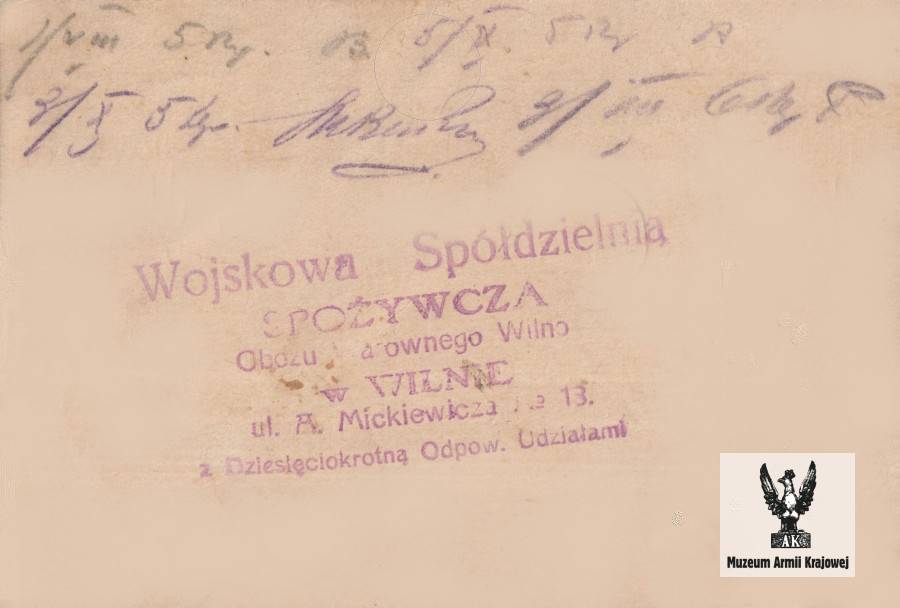 1/VIII 5 kg. 5/IX. 5 kg
3/X 5 kg. 2/
Wojskowa Spółdzielnia
SPOŻYWCZA
Obozu Warownego Wilno
w WILNIE
ul. A. Mickiewicza № 13.
z Dziesięciokrotną Odpow. Udziałami
AK
Muzeum Armii Krajowej